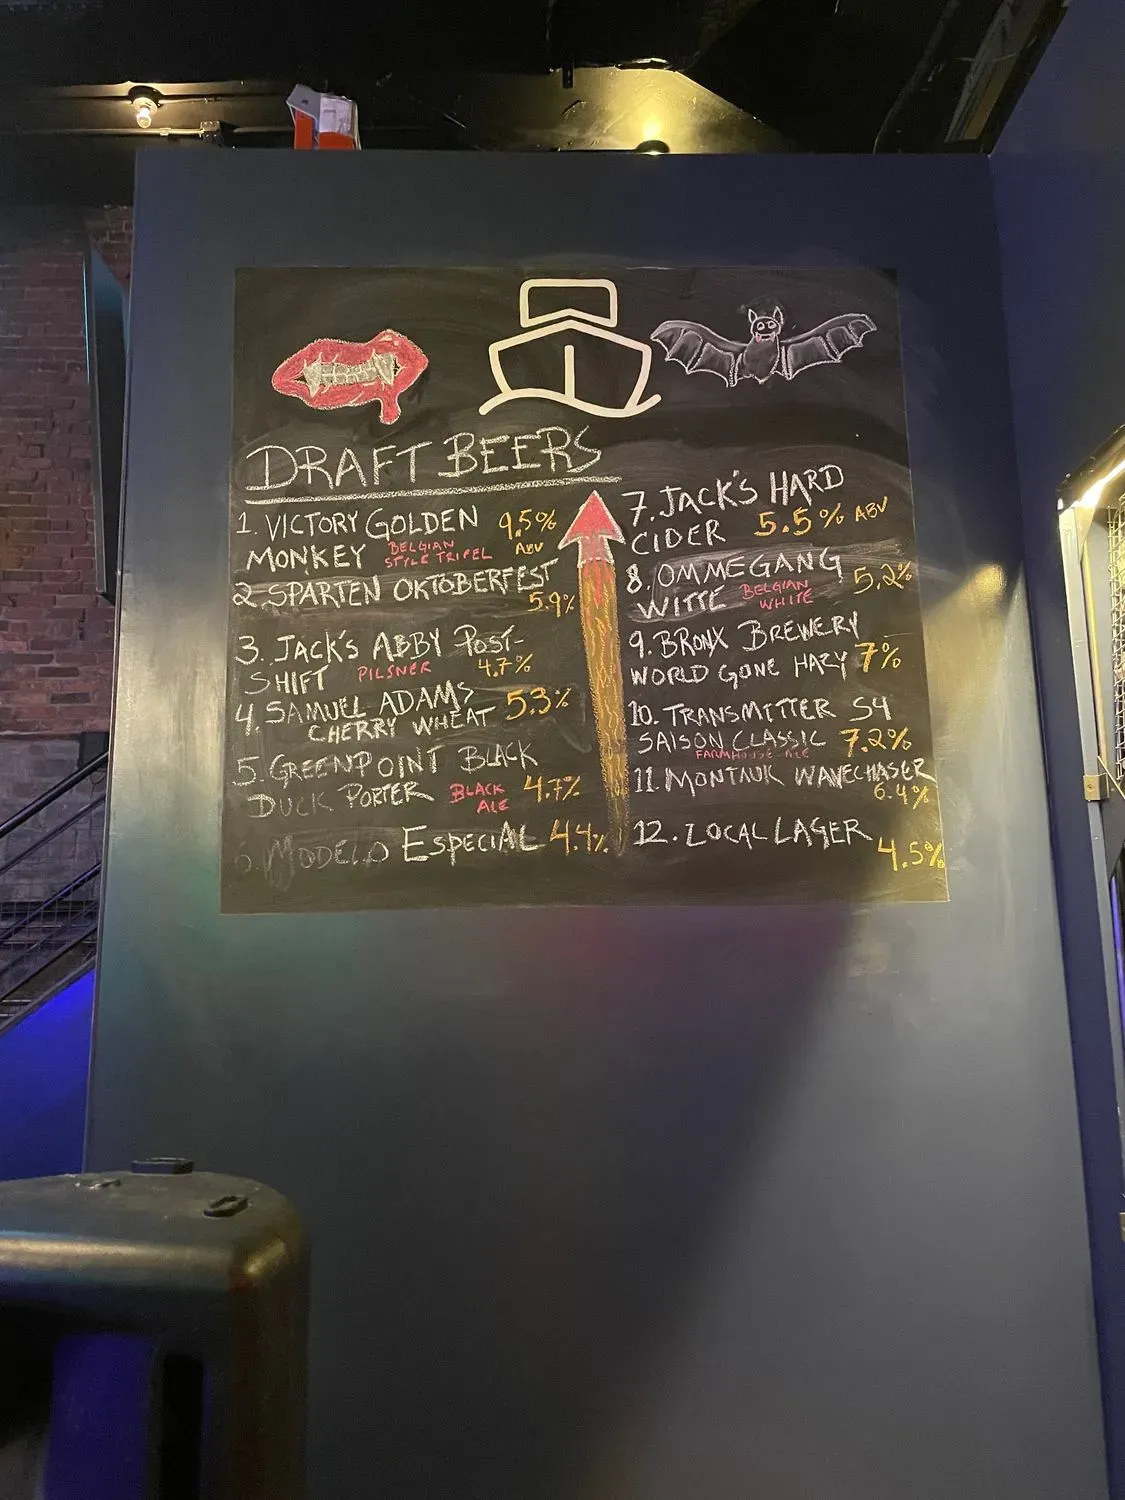 DRAFT BEERS
1. VICTORY GOLDEN 9.5%
MONKEY BELGIAN STYLE TRIPEL ABV
2. SPARTEN OKTOBERFEST
5.9%
3. JACK'S ABBY POST-
SHIFT PILSNER 4.7%
4. SAMUEL ADAMS 5.3%
CHERRY WHEAT
5. GREENPOINT BLACK
DUCK PORTER BLACK ALE 4.7%
6. MODELO ESPECIAL 4.4%
7. JACK'S HARD
CIDER 5.5% ABV
8. OMMEGANG 5.2%
WITTE BELGIAN WHITE
9. BRONX BREWERY
WORLD GONE HAZY 7%
10. TRANSMITTER S4
SAISON CLASSIC 7.2%
FARMHOUSE ALE
11. MONTAUK WAVECHASER
6.4%
12. LOCAL LAGER
4.5%